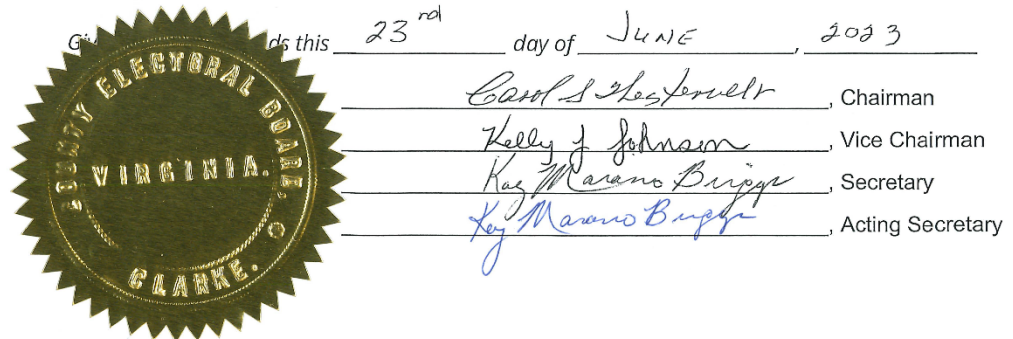 Gi ds this 23rd day of JUNE, 2023
Carol S Westervelt, Chairman
Kelly J Johnson, Vice Chairman
Kay Marano Briggs, Secretary
Kay Marano Briggs, Acting Secretary
COUNTY ELECTORAL BOARD,
VIRGINIA.
CLARKE.